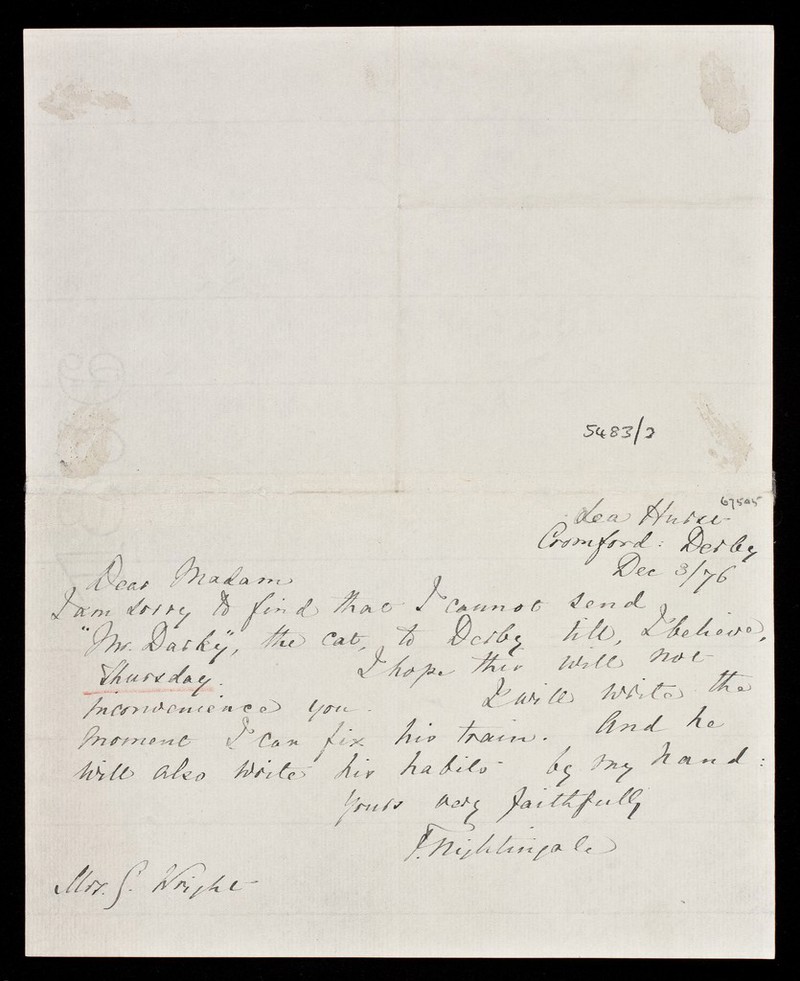 5483/2
67505
Lea Hurst
Cromford: Derby
Dec 3/76
Dear Madam
I am sorry to find that I cannot send
"Mr. Darky", the cat, to Derby till, I believe,
Thursday. I hope this will not
inconvenience you. I will write the
moment I can fix his train. And he
will also write his habits by my hand:
Yours very faithfully
F. Nightingale
Mrs. G. Wright